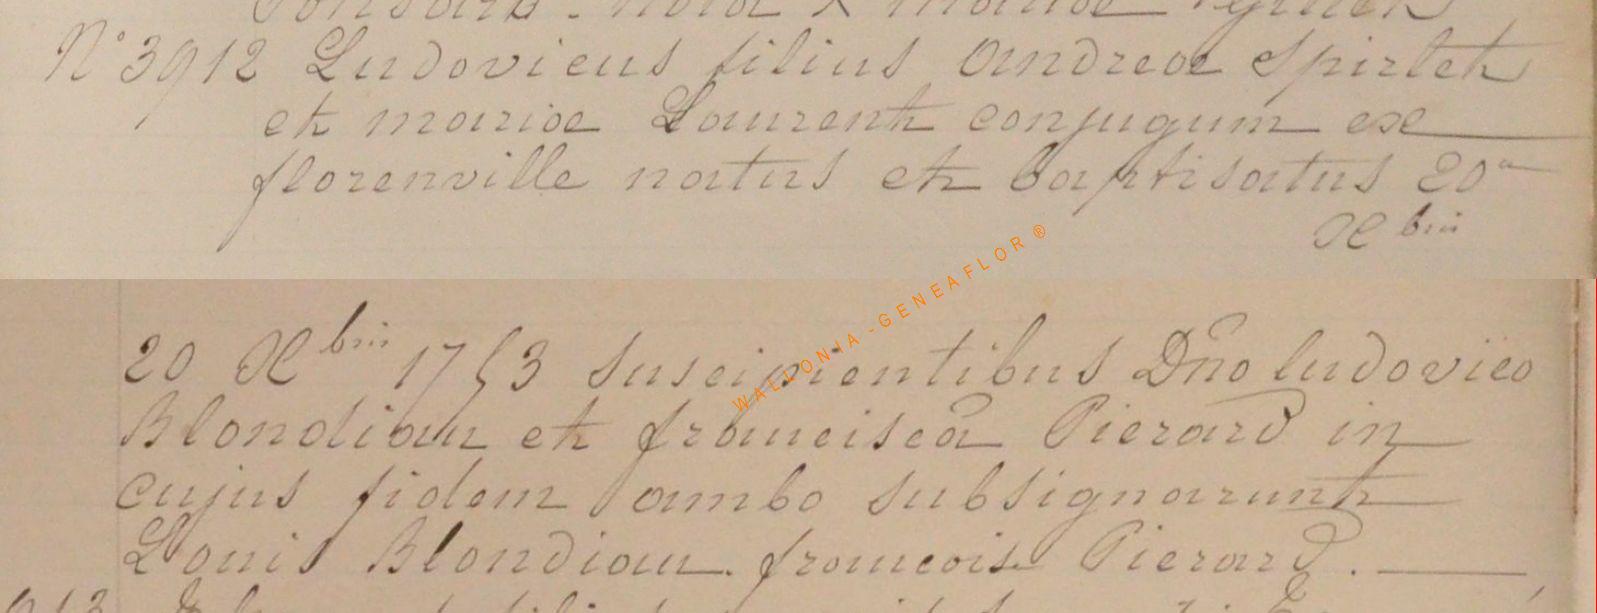 N° 3912 Ludovicus filius Andreae Spirlet
et mariae Laurent conjugum ex
florenville natus et baptisatus 20a
Xbris
20 Xbris 1753 suscipientibus Dño ludovico
Blondiau et francisca Pierard in
cujus fidem ambo subsignarunt
Louis Blondiau. francois Pierard.
WALLONIA-GENEAFLOR ®